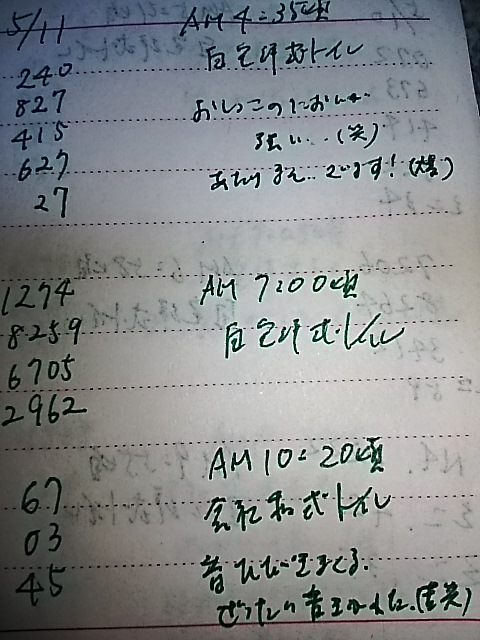 5/11 AM 4:35頃
240 自宅洋式トイレ
827 おしっこのにおいが
415 強い...(笑)
627 あたりまえ...でいます!(爆)
27
1274 AM 7:00頃
8259 自宅洋式トイレ
6705
2962
AM 10:20頃
67 会社和式トイレ
03
45 音ひびきまくる。
ぜったい音